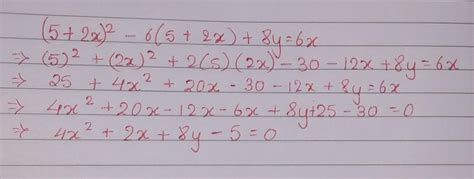 (5 + 2x)² - 6(5 + 2x) + 8y = 6x
⇒ (5)² + (2x)² + 2(5)(2x) - 30 - 12x + 8y = 6x
⇒ 25 + 4x² + 20x - 30 - 12x + 8y = 6x
⇒ 4x² + 20x - 12x - 6x + 8y + 25 - 30 = 0
⇒ 4x² + 2x + 8y - 5 = 0